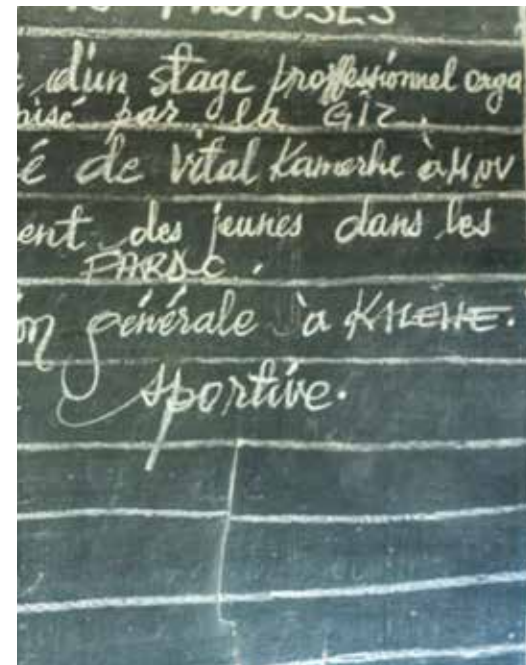 PROPOSÉS
d'un stage proffessionnel orga
nisé par la GIZ.
é de Vital Kamerhe à
ent des jeunes dans les
FARDC.
on générale à KALEHE.
sportive.